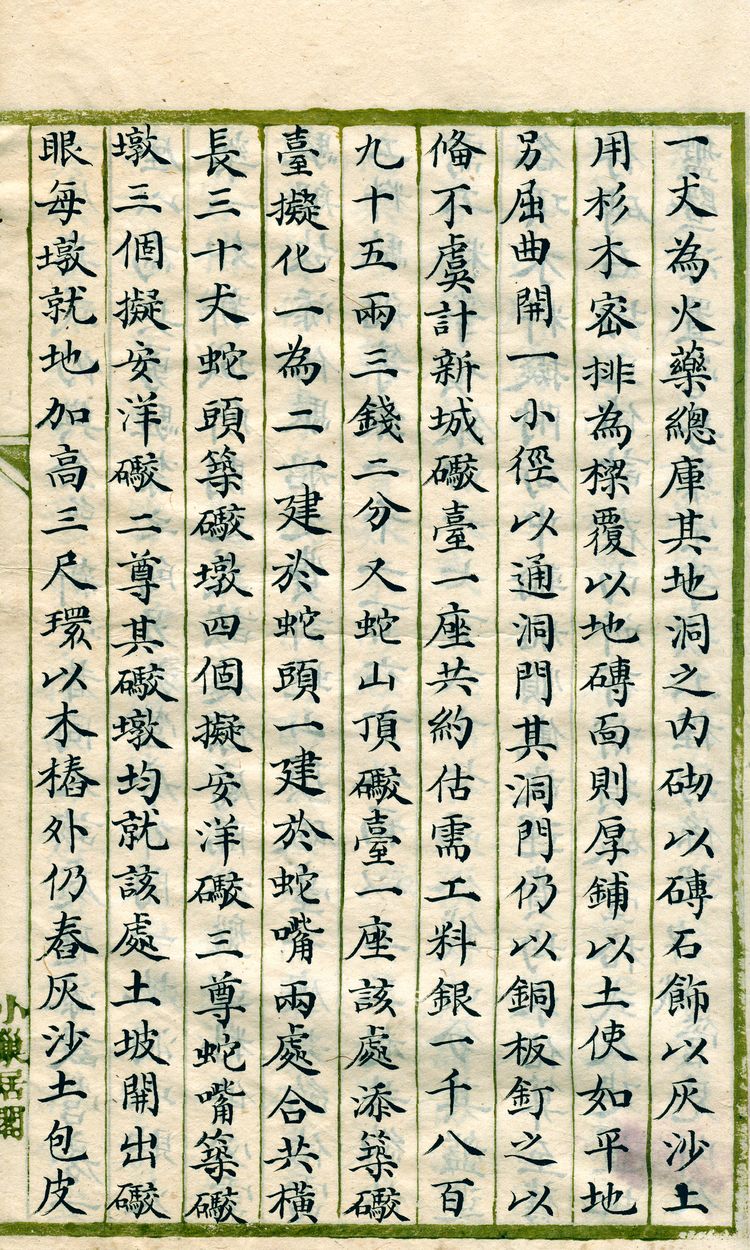 一丈為火藥總庫其地洞之內砌以磚石飾以灰沙土
用杉木密排為樑覆以地磚面則厚鋪以土使如平地
另屈曲開一小徑以通洞門其洞門仍以銅板釘之以
俻不虞計新城礮臺一座共約估需工料銀一千八百
九十五兩三錢二分又蛇山頂礮臺一座該處添築礮
臺擬化一為二一建於蛇頭一建於蛇嘴兩處合共橫
長三十丈蛇頭築礮墩四個擬安洋礮三尊蛇嘴築礮
墩三個擬安洋礮二尊其礮墩均就該處土坡開出礮
眼每墩就地加高三尺環以木樁外仍舂灰沙土包皮
小巢居閣